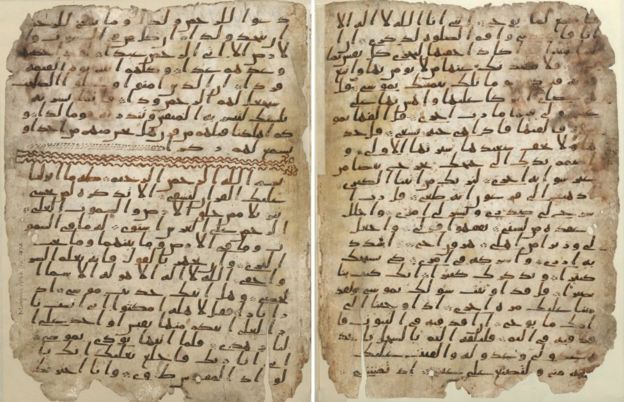 دعوا للرحمن ولدا وما ينبغي للرحمن
ان يتخذ ولدا ان كل من في السموت و
الارض الا اتي الرحمن عبدا لقد احصيهم
وعدهم عدا وكلهم اتيه يوم القيمة
فردا ان الذين امنوا وعملوا الصلحت
سيجعل لهم الرحمن ودا فانما يسرنه
بلسنك لتبشر به المتقين وتنذر به قوما لدا و
كم اهلكنا قبلهم من قرن هل تحس منهم من احد او
تسمع لهم ركزا
بسم الله الرحمن الرحيم طه ما انزلنا
عليك القرن لتشقى الا تذكرة لمن يخشى
تنزيلا ممن خلق الارض والسموت العلى
الرحمن على العرش استوى له ما في السمو
ت وما في الارض وما بينهما وما تحت
الثرى وان تجهر بالقول فانه يعلم السر
واخفى الله لا اله الا هو له الاسما
الحسنى وهل اتيك حديث موسى اذ
را نارا فقال لاهله امكثوا اني انست نا
را لعلي اتيكم منها بقبس او اجد على ا
لنار هدى فلما اتيها نودي يموسى
اني انا ربك فاخلع نعليك انك با
لواد المقدس طوى وانا اخترتك
فاستمع لما يوحى انني انا الله لا اله الا
انا فاعبدني واقم الصلوة لذكري ان ا
لساعة اتية اكاد اخفيها لتجزى كل نفس بما
تسعى فلا يصدنك عنها من لا يومن بها واتبع
هويه فتردى وما تلك بيمينك يموسى قا
ل هي عصاي اتوكوا عليها واهش بها على
غنمي ولي فيها مارب اخرى قال القها يمو
سى فالقيها فاذا هي حية تسعى قال خذ
ها ولا تخف سنعيدها سيرتها الاولى و
اضمم يدك الى جناحك تخرج بيضا من
غير سو اية اخرى لنريك من ايتنا الكبرى
اذهب الى فرعون انه طغى قال رب ا
شرح لي صدري ويسر لي امري واحلل
عقدة من لسني يفقهوا قولي واجعل
لي وزيرا من اهلي هرون اخي اشدد
به ازري واشركه في امري كي نسبحك
كثيرا ونذكرك كثيرا انك كنت بنا
بصيرا قال قد اوتيت سولك يموسى ولقد
مننا عليك مرة اخرى اذ اوحينا الى
امك ما يوحى ان اقذفيه في التبوت فا
قذفيه في اليم فليلقه اليم بالسحل ياخذه
عدو لي وعدو له والقيت عليك
محبة مني ولتصنع على عيني اذ تمشي